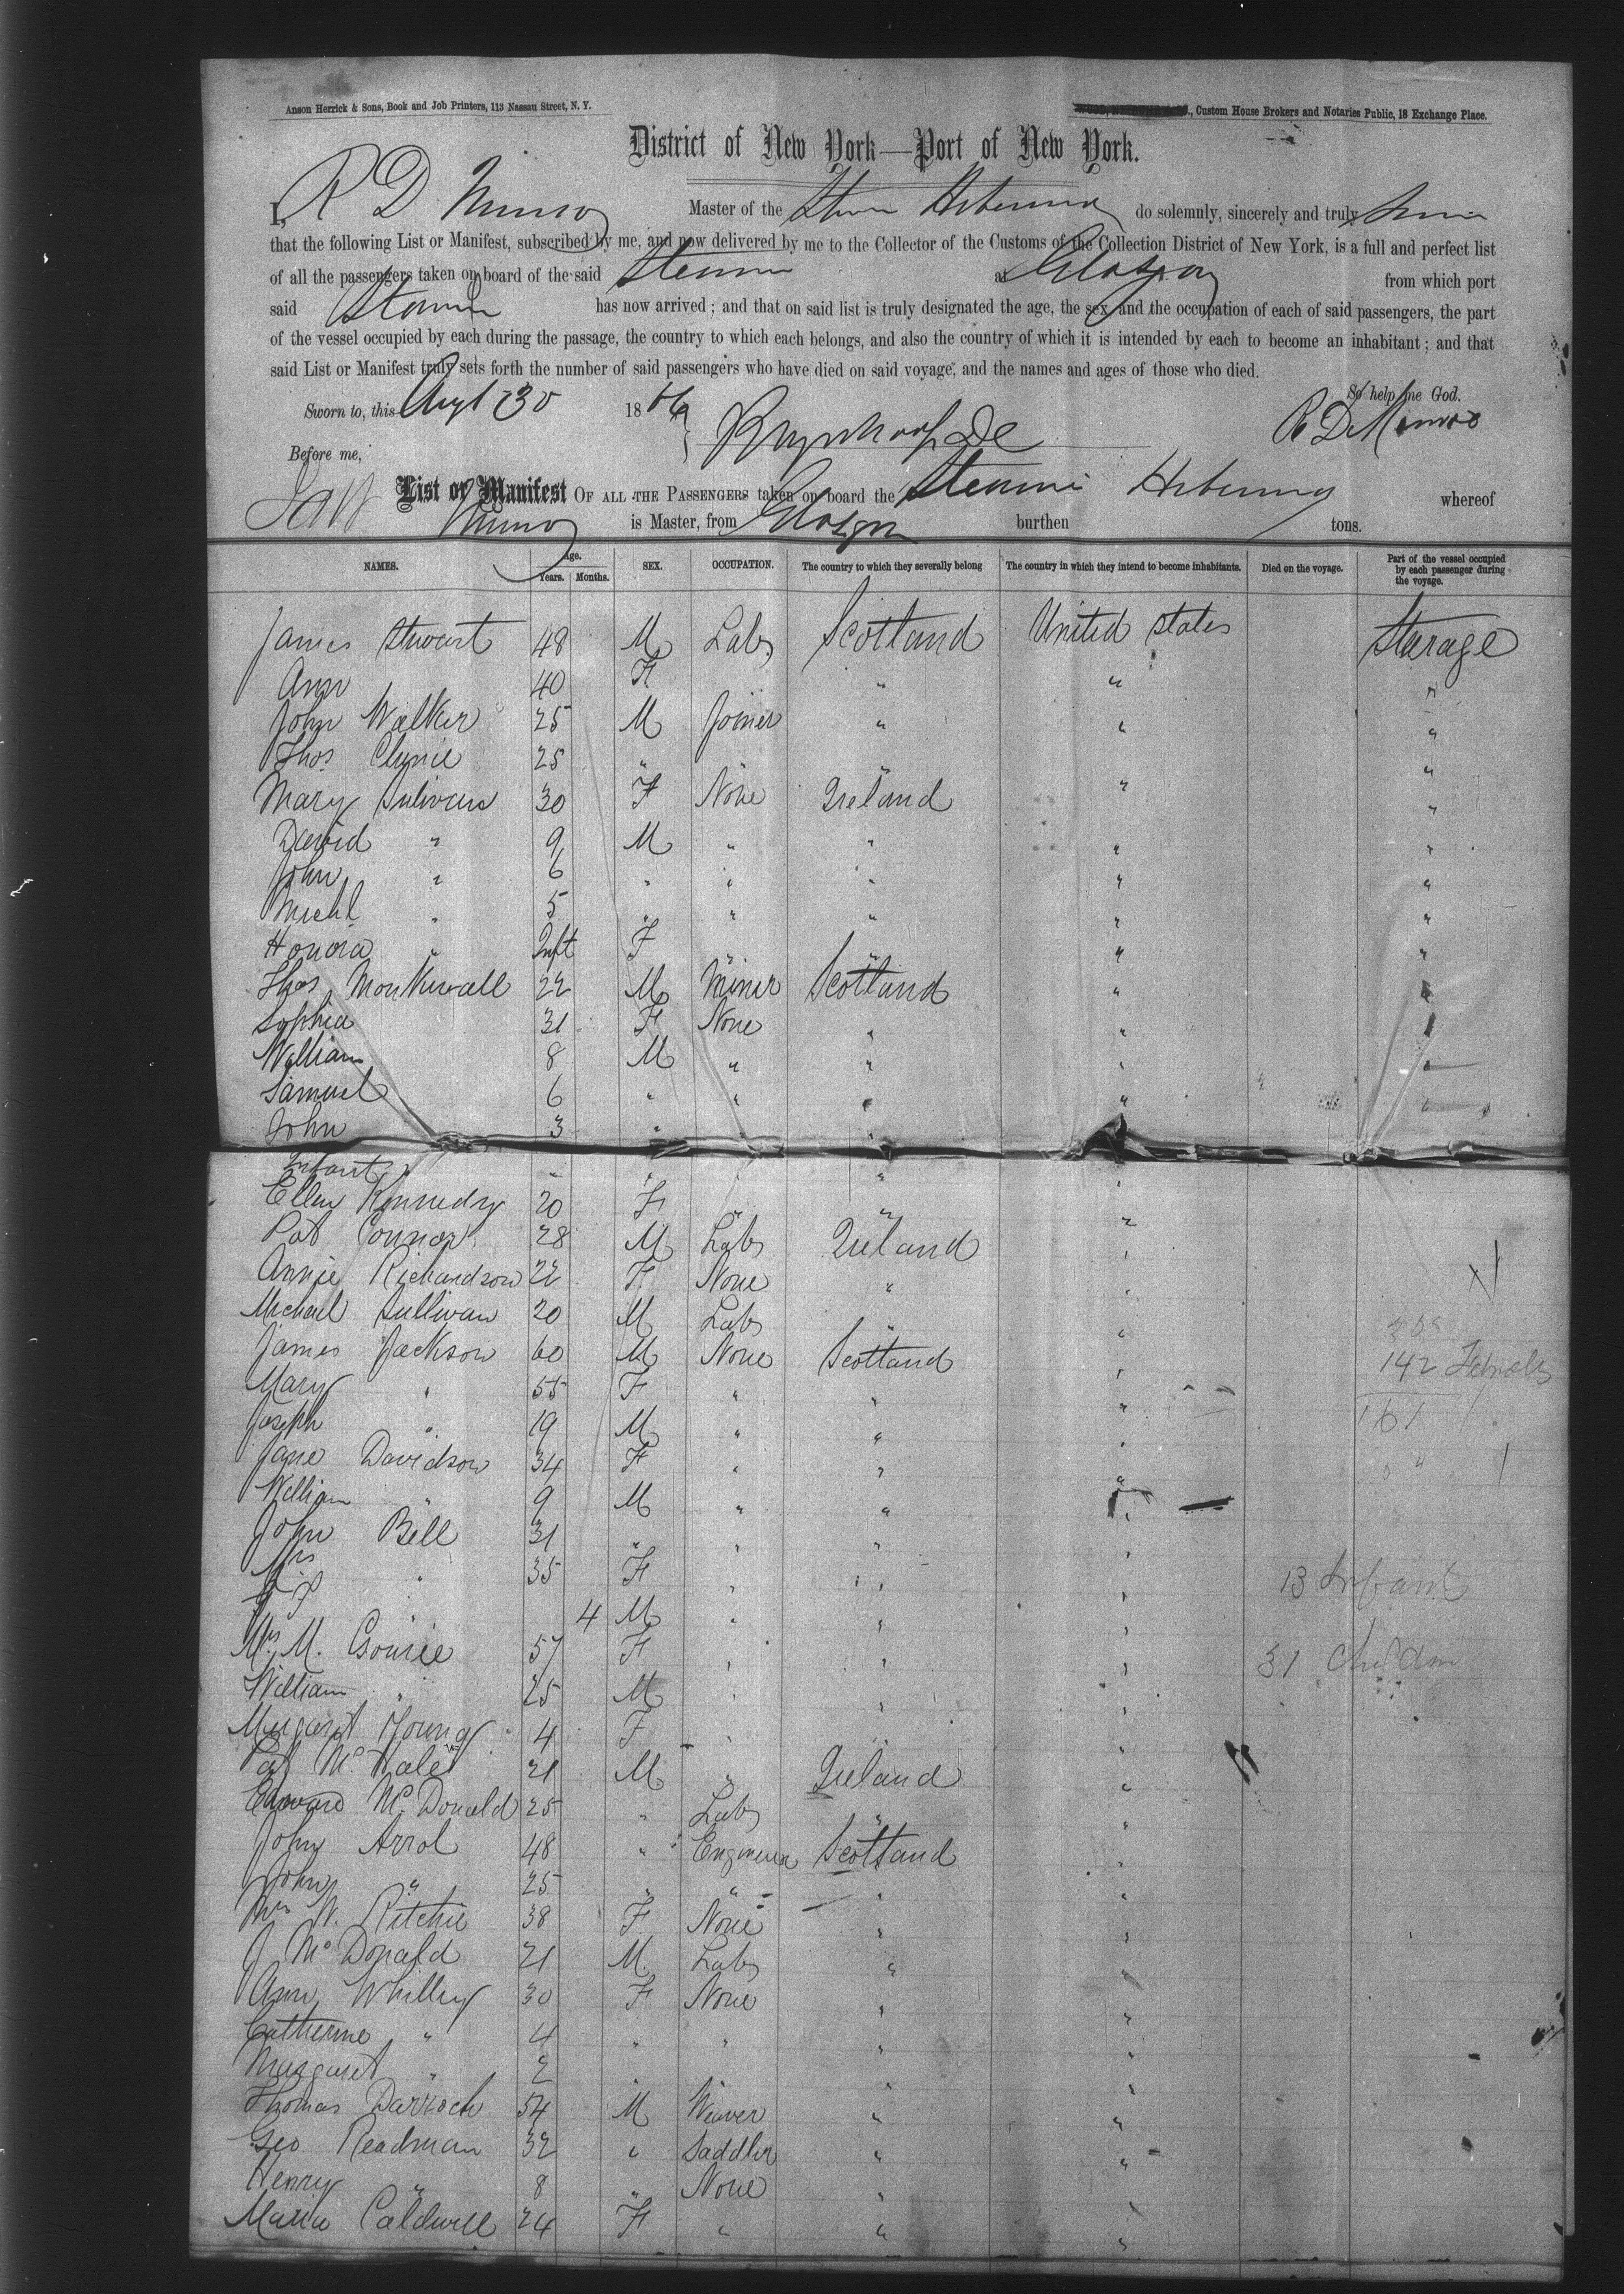 Anson Herrick & Sons, Book and Job Printers, 113 Nassau Street, N. Y.
, Custom House Brokers and Notaries Public, 18 Exchange Place.
District of New York—Port of New York.
I, R D Munro Master of the Stmr Hibernia do solemnly, sincerely and truly
that the following List or Manifest, subscribed by me, and now delivered by me to the Collector of the Customs of the Collection District of New York, is a full and perfect list
of all the passengers taken on board of the said Steamer at Glasgow from which port
said Steamer has now arrived; and that on said list is truly designated the age, the sex, and the occupation of each of said passengers, the part
of the vessel occupied by each during the passage, the country to which each belongs, and also the country of which it is intended by each to become an inhabitant; and that
said List or Manifest truly sets forth the number of said passengers who have died on said voyage, and the names and ages of those who died.
So help me God.
Sworn to, this Augt 30 1866
R D Munro
Before me,
List or Manifest OF ALL THE PASSENGERS taken on board the Steamer Hibernia whereof
Munro is Master, from Glasgow burthen tons.
NAMES. Age. Years. Months. SEX. OCCUPATION. The country to which they severally belong The country in which they intend to become inhabitants. Died on the voyage. Part of the vessel occupied by each passenger during the voyage.
James Stewart 48 M Labr Scotland United States Sterage
Ann 40 F " " "
John Walker 25 M Joiner " " "
Thos Clynie 25 " " " "
Mary Sulivan 30 F None Ireland " "
David " 9 M " " " "
John " 6 " " " " "
Michl " 5 " " " " "
Honora " Inft F " " " "
Thos Monkwall 22 M Miner Scotland " "
Sophia 31 F None " " "
William 8 M " " " "
Samuel 6 " " " " "
John 3 " " "
Infant " " " "
Ellen Kennedy 20 F " " "
Pat Connor 28 M Labr Ireland "
Annie Richardson 22 F None " "
Michael Sullivan 20 M Labr " "
James Jackson 60 M None Scotland "
142 Females
Mary " 55 F " " "
Joseph " 19 M " " "
161
Jane Davidson 34 F " " "
William " 9 M " " "
John Bell 31 " " " "
Mrs " 35 F " " "
13 Infants
" 4 M " " "
Mrs M. Gourie 57 F " " "
31 Children
William " 25 M " " "
Margaret Young 4 F " "
Pat McHale 21 M " Ireland "
Edward McDonald 25 " Labr " "
John Arrol 48 " Engineer Scotland "
John " 25 " " " "
Mrs W. Ritchie 38 F None " "
J McDonald 21 M Labr " "
Ann Whilley 30 F None " "
Catherine " 4 " " " "
Margaret " 2 " " "
Thomas Darroch 54 M Weaver " "
Geo Readman 32 " Saddler " "
Henry " 8 " None " "
Maria Caldwell 24 F " " "